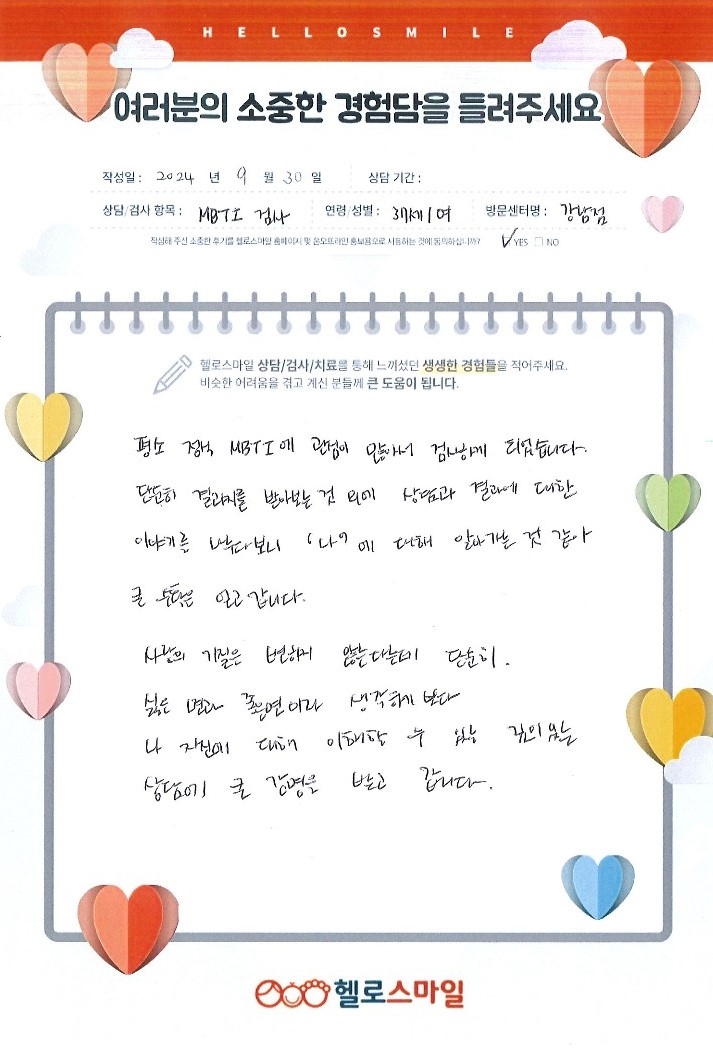 HELLOSMILE
여러분의 소중한 경험담을 들려주세요
작성일 : 2024 년 9 월 30 일 상담 기간 :
상담/검사 항목 : MBTI 검사 연령/성별 : 37세/여 방문센터명 : 강남점
작성해 주신 소중한 후기를 헬로스마일 홈페이지 및 온오프라인 홍보용으로 사용하는 것에 동의하십니까? YES NO
헬로스마일 상담/검사/치료를 통해 느끼셨던 생생한 경험들을 적어주세요.
비슷한 어려움을 겪고 계신 분들께 큰 도움이 됩니다.
평소 정식 MBTI에 관심이 많아서 검사하게 되었습니다.
단순히 결과지를 받아보는 것 외에 상담과 결과에 대한
이야기를 나누다보니 '나'에 대해 알아가는 것 같아
큰 얻고 갑니다.
사람의 기질은 변하지 않는다는데 단순히.
싫은 면과 좋은면이라 생각하기 보다
나 자신에 대해 이해할 수 있는 깊이있는
상담에 큰 감명을 받고 갑니다.
헬로스마일